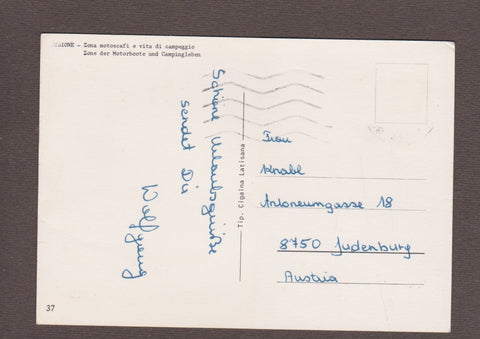 BIONE - Zona motoscafi e vita di campeggio
Zone der Motorboote und Campingleben
Schöne Urlaubsgrüße
sendet Dir
Wolfgang
Tip. Cigaina Latisana -
Frau
Knabl
Antoneumgasse 18
8750 Judenburg
Austria
37